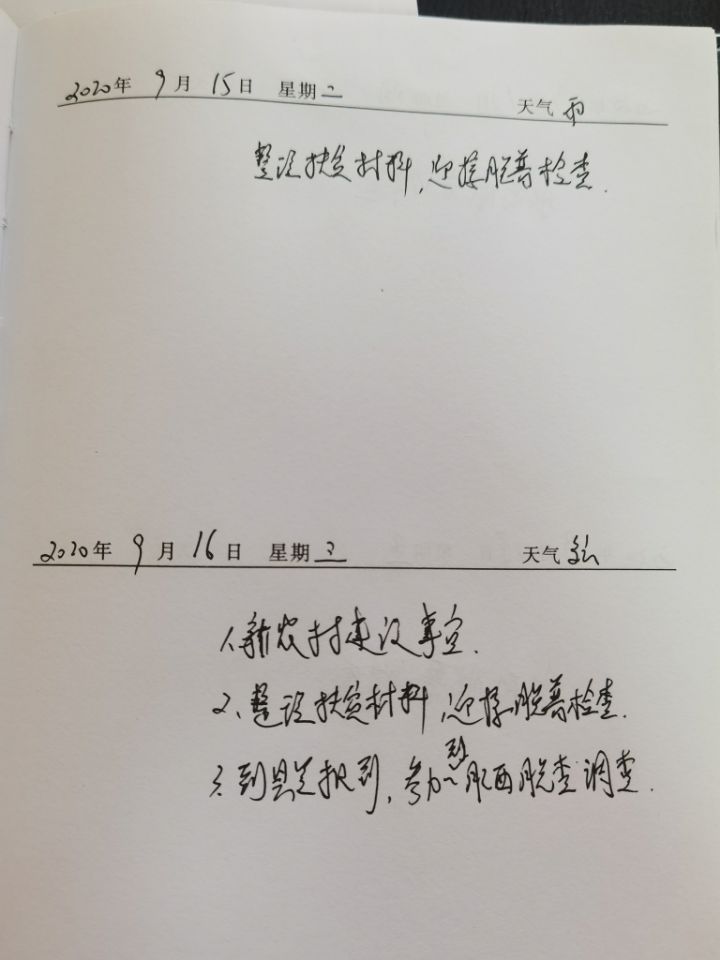 2020年 9月 15日 星期二 天气 雨
整理扶贫材料,迎接脱普检查.
2020年 9月 16日 星期三 天气
1、新农村建设事宜.
2、整理扶贫材料,迎接脱普检查.
3、到县里报到,参加到永西脱查调查.